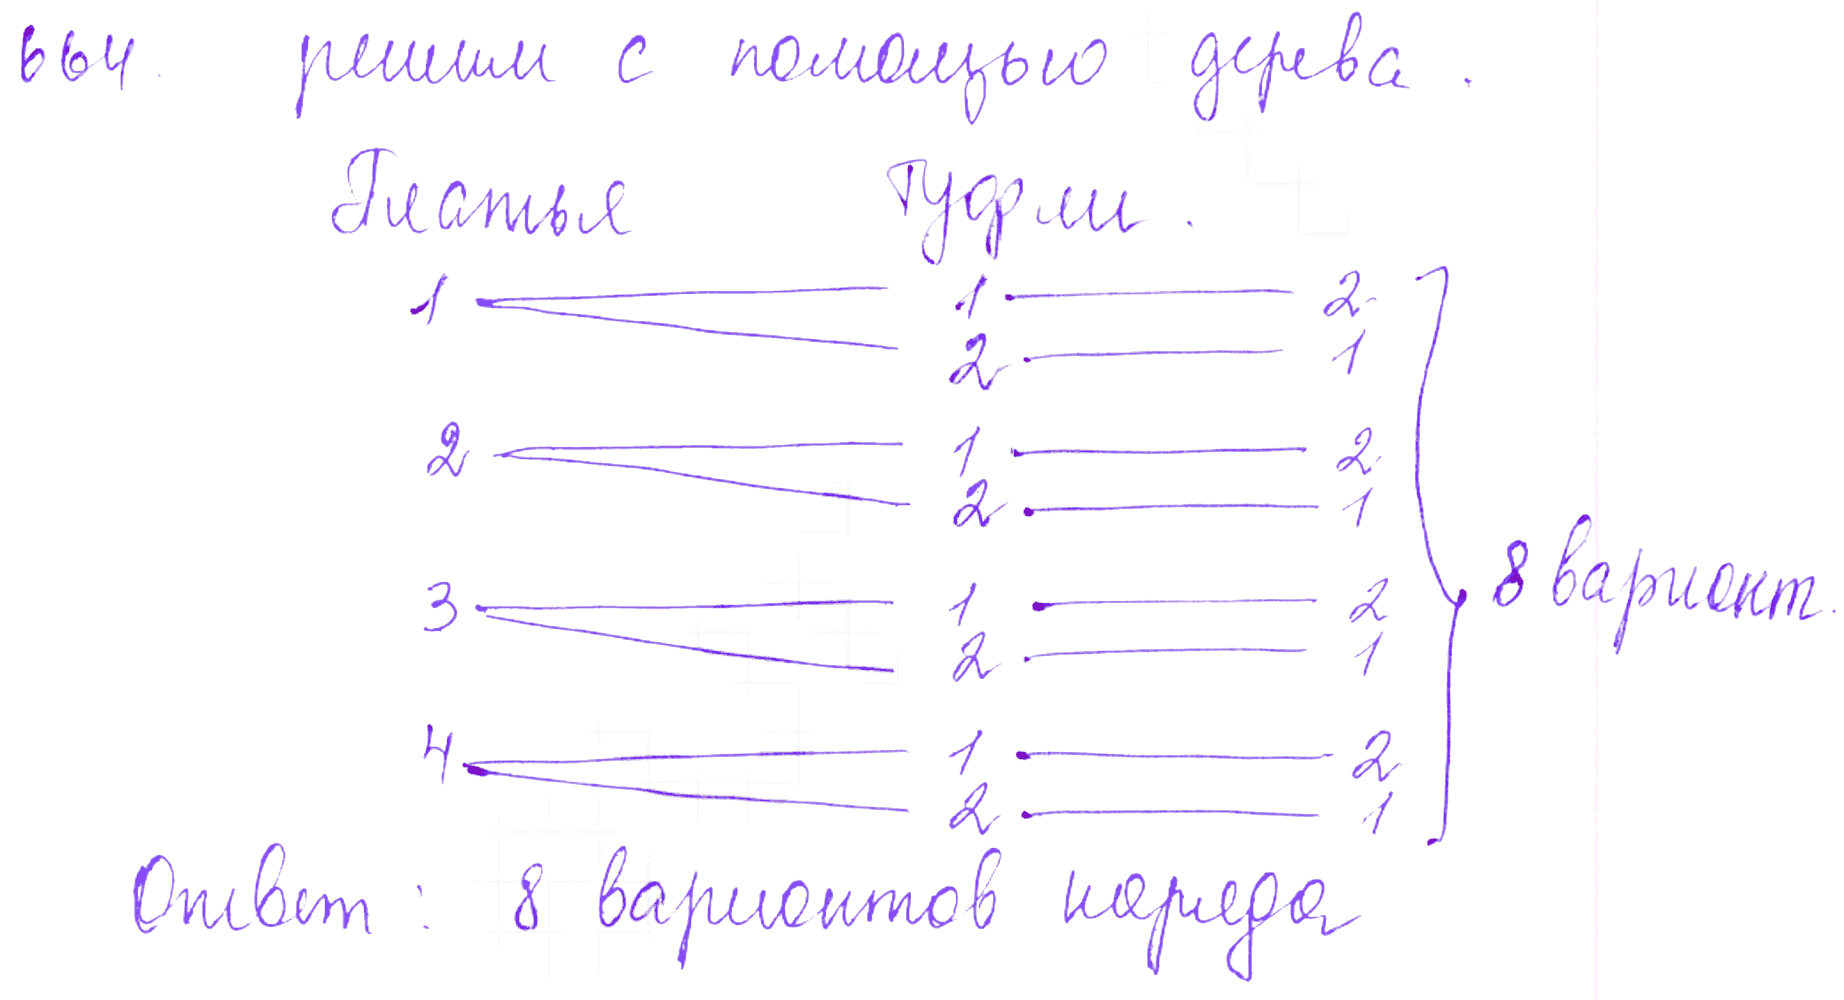 664. решим с помощью дерева.
Платья Туфли.
1 1 2
2 1
2 1 2
2 1
3 1 2
2 1
4 1 2
2 1
8 вариант.
Ответ: 8 вариантов наряда